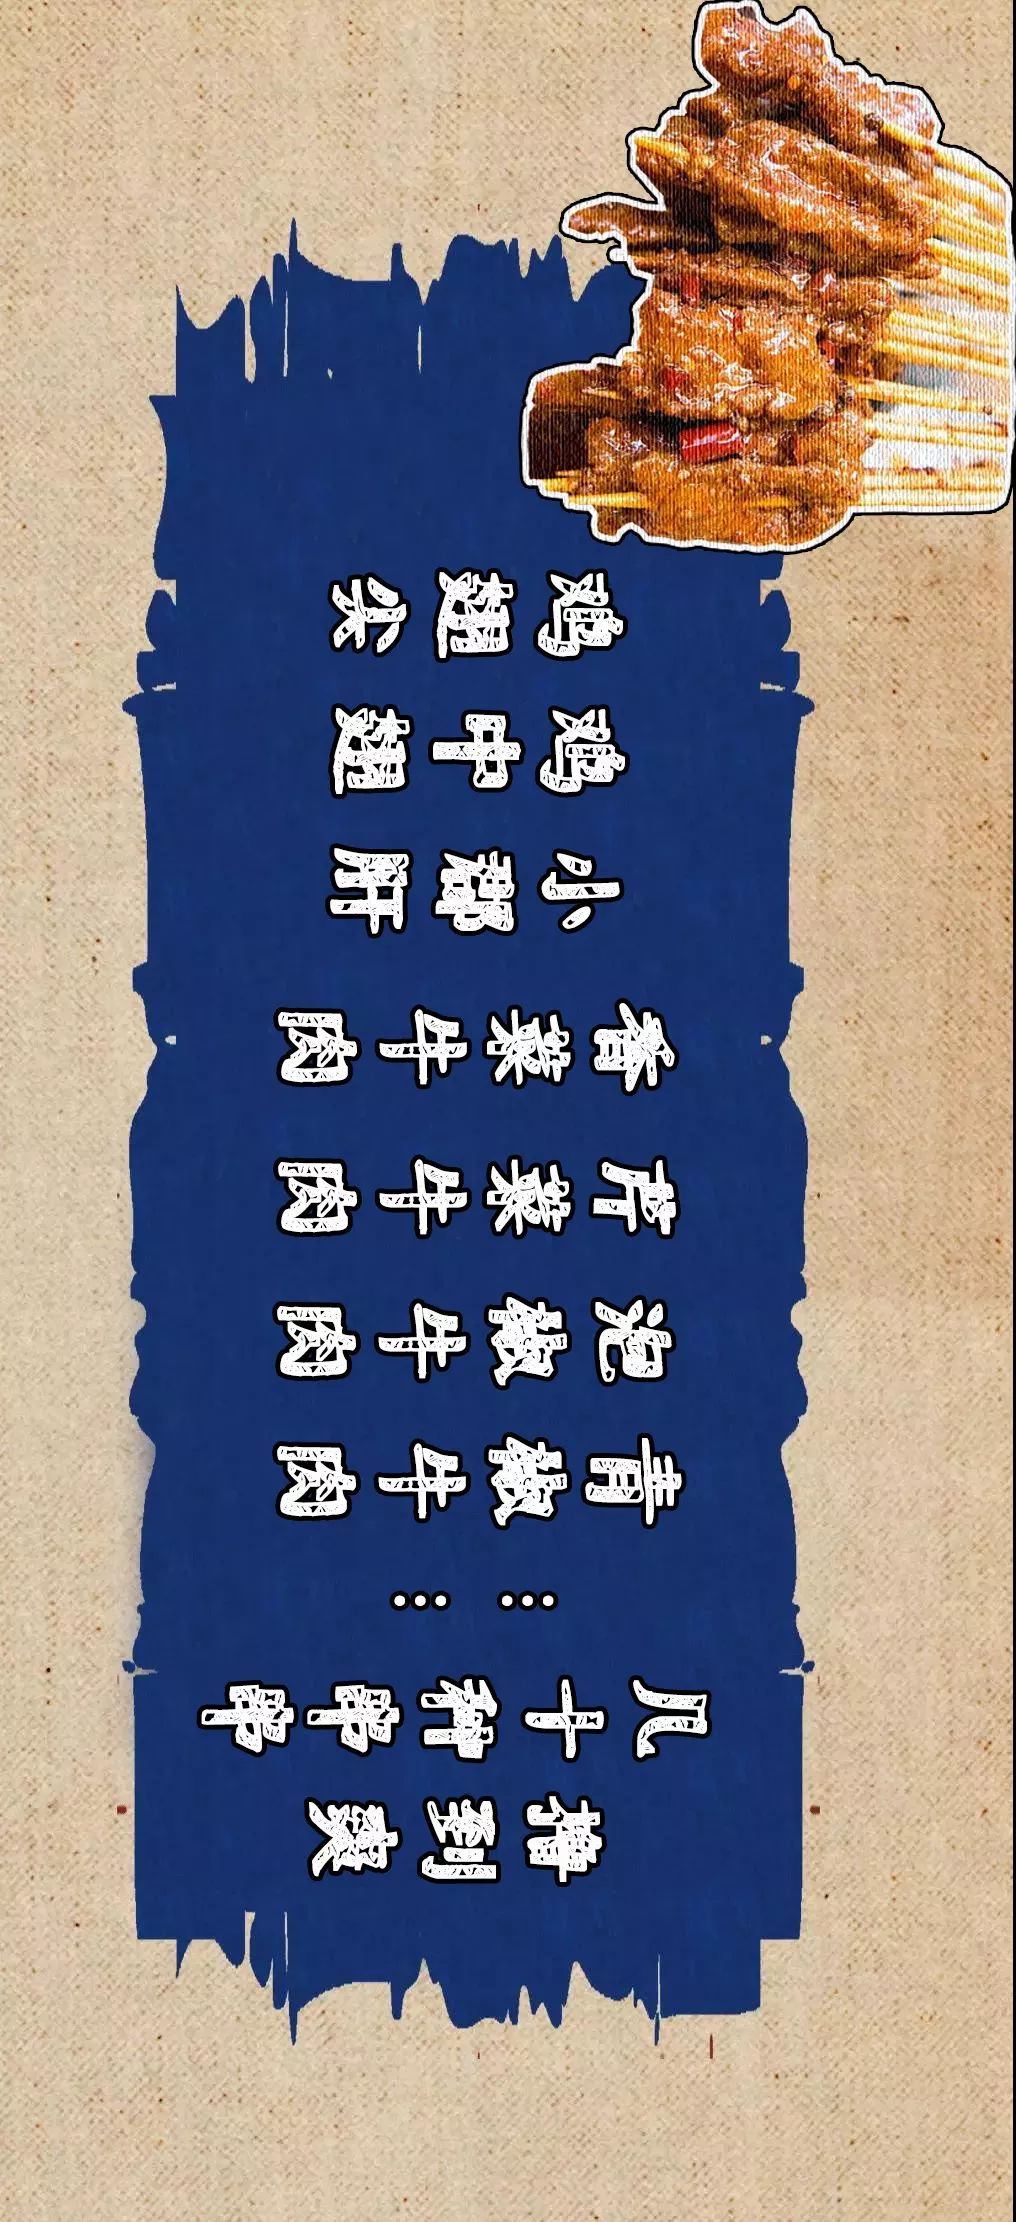 鸡翅尖
鸡中翅
小郡肝
香菜牛肉
芹菜牛肉
泡椒牛肉
青椒牛肉
……
几十种串串
撸到爽